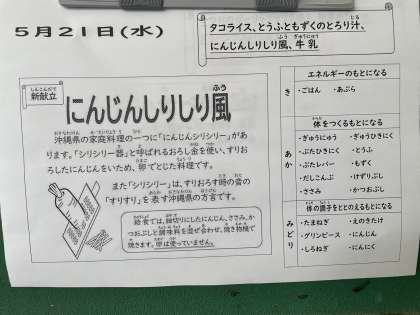 5月21日(水)
タコライス、とうふともずくのとろり汁、
にんじんしりしり風、牛乳
しんこんだて
新献立
にんじんしりしり風
沖縄県の家庭料理の一つに「にんじんシリシリー」があ
ります。「シリシリー器」と呼ばれるおろし金を使い、すり
おろしたにんじんをいため、卵でとじた料理です。
また「シリシリー」は、すりおろす時の音の
「すりすり」を表す沖縄県の方言です。
給食では、細切りにしたにんじん、ささみ、か
つおぶしと調味料を混ぜ合わせ、焼き物機で
焼きます。卵は使っていません。
エネルギーのもとになる
き
・ごはん ・あぶら
体をつくるもとになる
あか
・ぎゅうにゅう ・ぎゅうひきにく
・ぶたひきにく ・とうふ
・ぶたレバー ・もずく
・だしこんぶ ・けずりぶし
・ささみ ・かつおぶし
体の調子をととのえるもとになる
みどり
・たまねぎ ・えのきたけ
・グリンピース ・にんじん
・しろねぎ ・にんにく